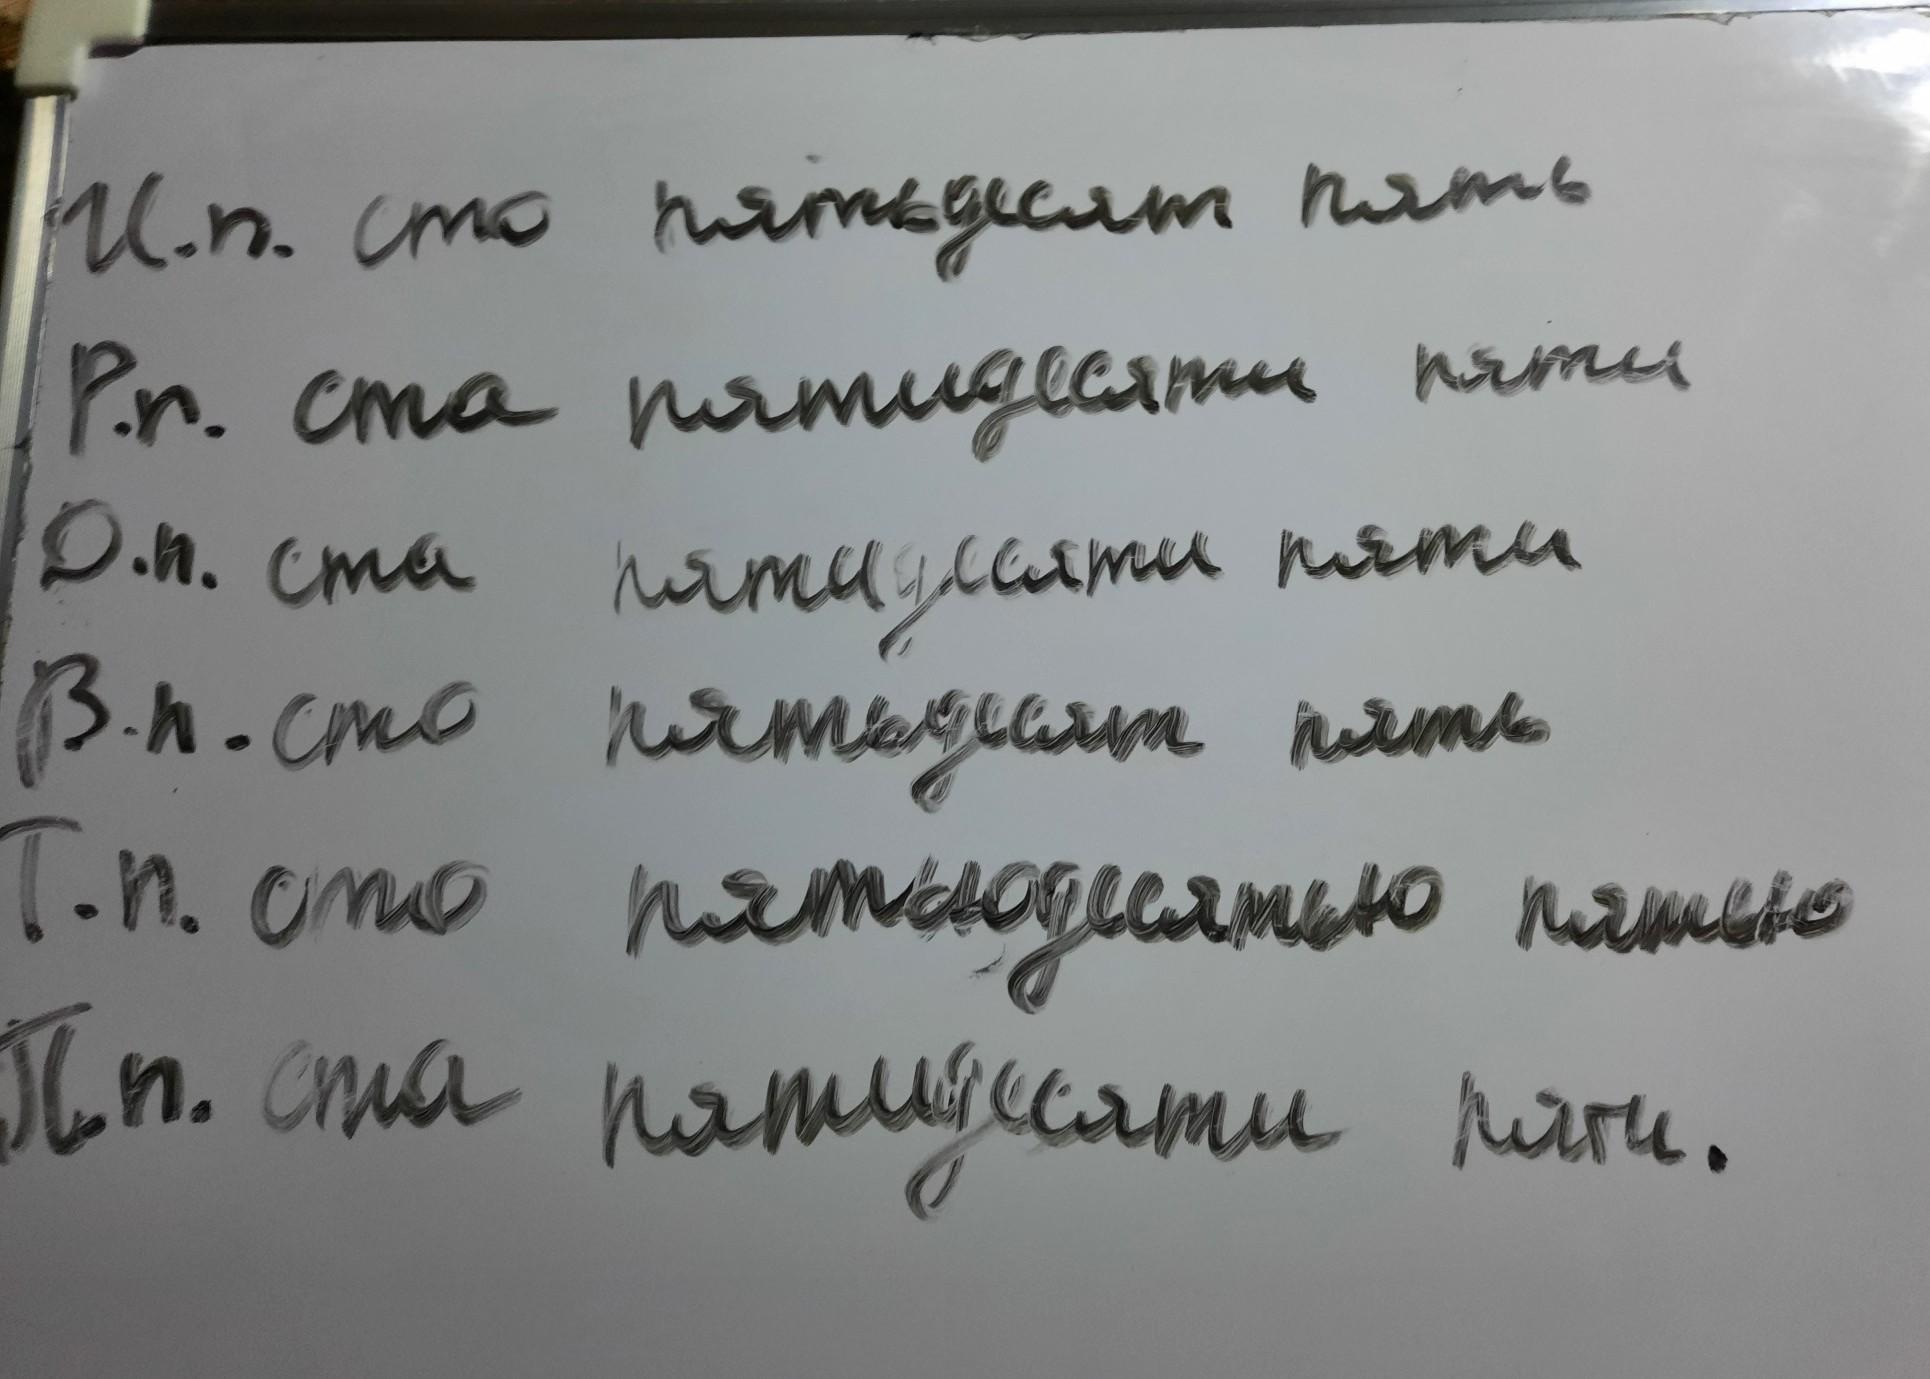 И.п. сто пятьдесят пять
Р.п. ста пятидесяти пяти
Д.п. ста пятидесяти пяти
В.п. сто пятьдесят пять
Т.п. сто пятьюдесятью пятью
П.п. ста пятидесяти пяти.